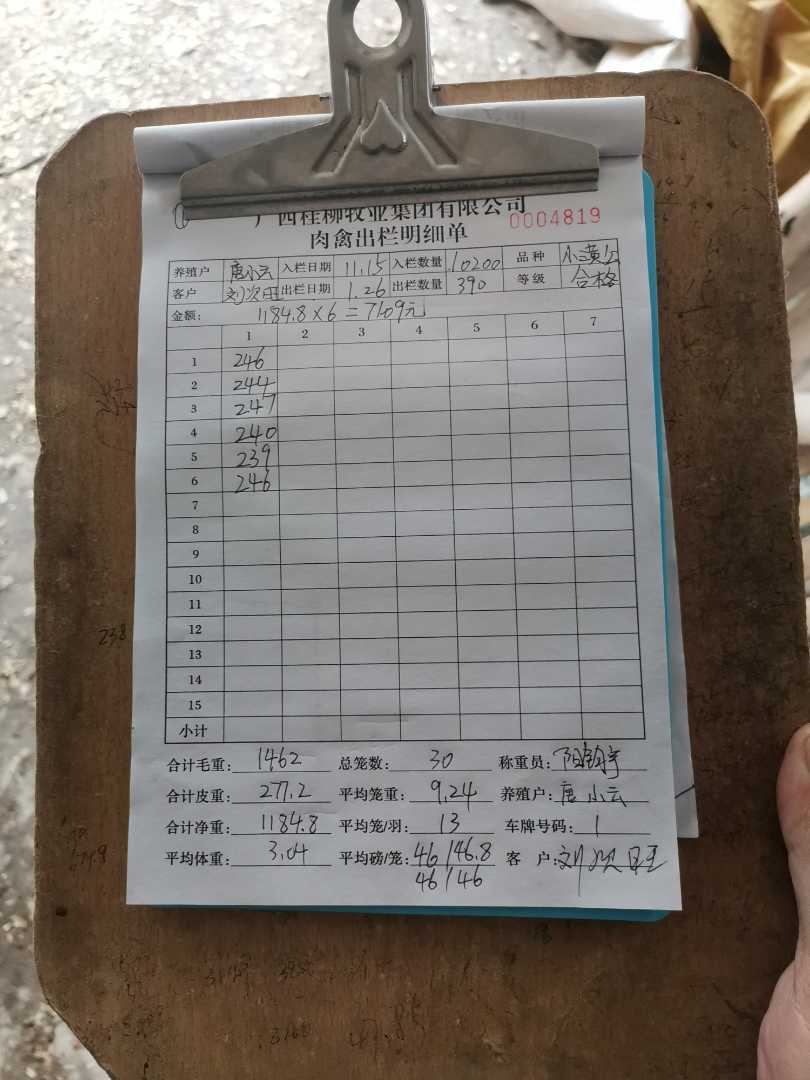 广西桂柳牧业集团有限公司
0004819
肉禽出栏明细单
养殖户 唐小云 入栏日期 11.15 入栏数量 10200 品种
客户 刘次旺 出栏日期 1.26 出栏数量 390 等级 合格
金额: 1184.8×6=7109元
1 2 3 4 5 6 7
1 246
2 244
3 247
4 240
5 239
6 246
7
8
9
10
11
12
13
14
15
小计
合计毛重: 1462 总笼数: 30 称重员:
合计皮重: 277.2 平均笼重: 9.24 养殖户: 唐小云
合计净重: 1184.8 平均笼/羽: 13 车牌号码: 1
平均体重: 3.04 平均磅/笼: 46/46.8 客户: 刘次旺
46/46
238